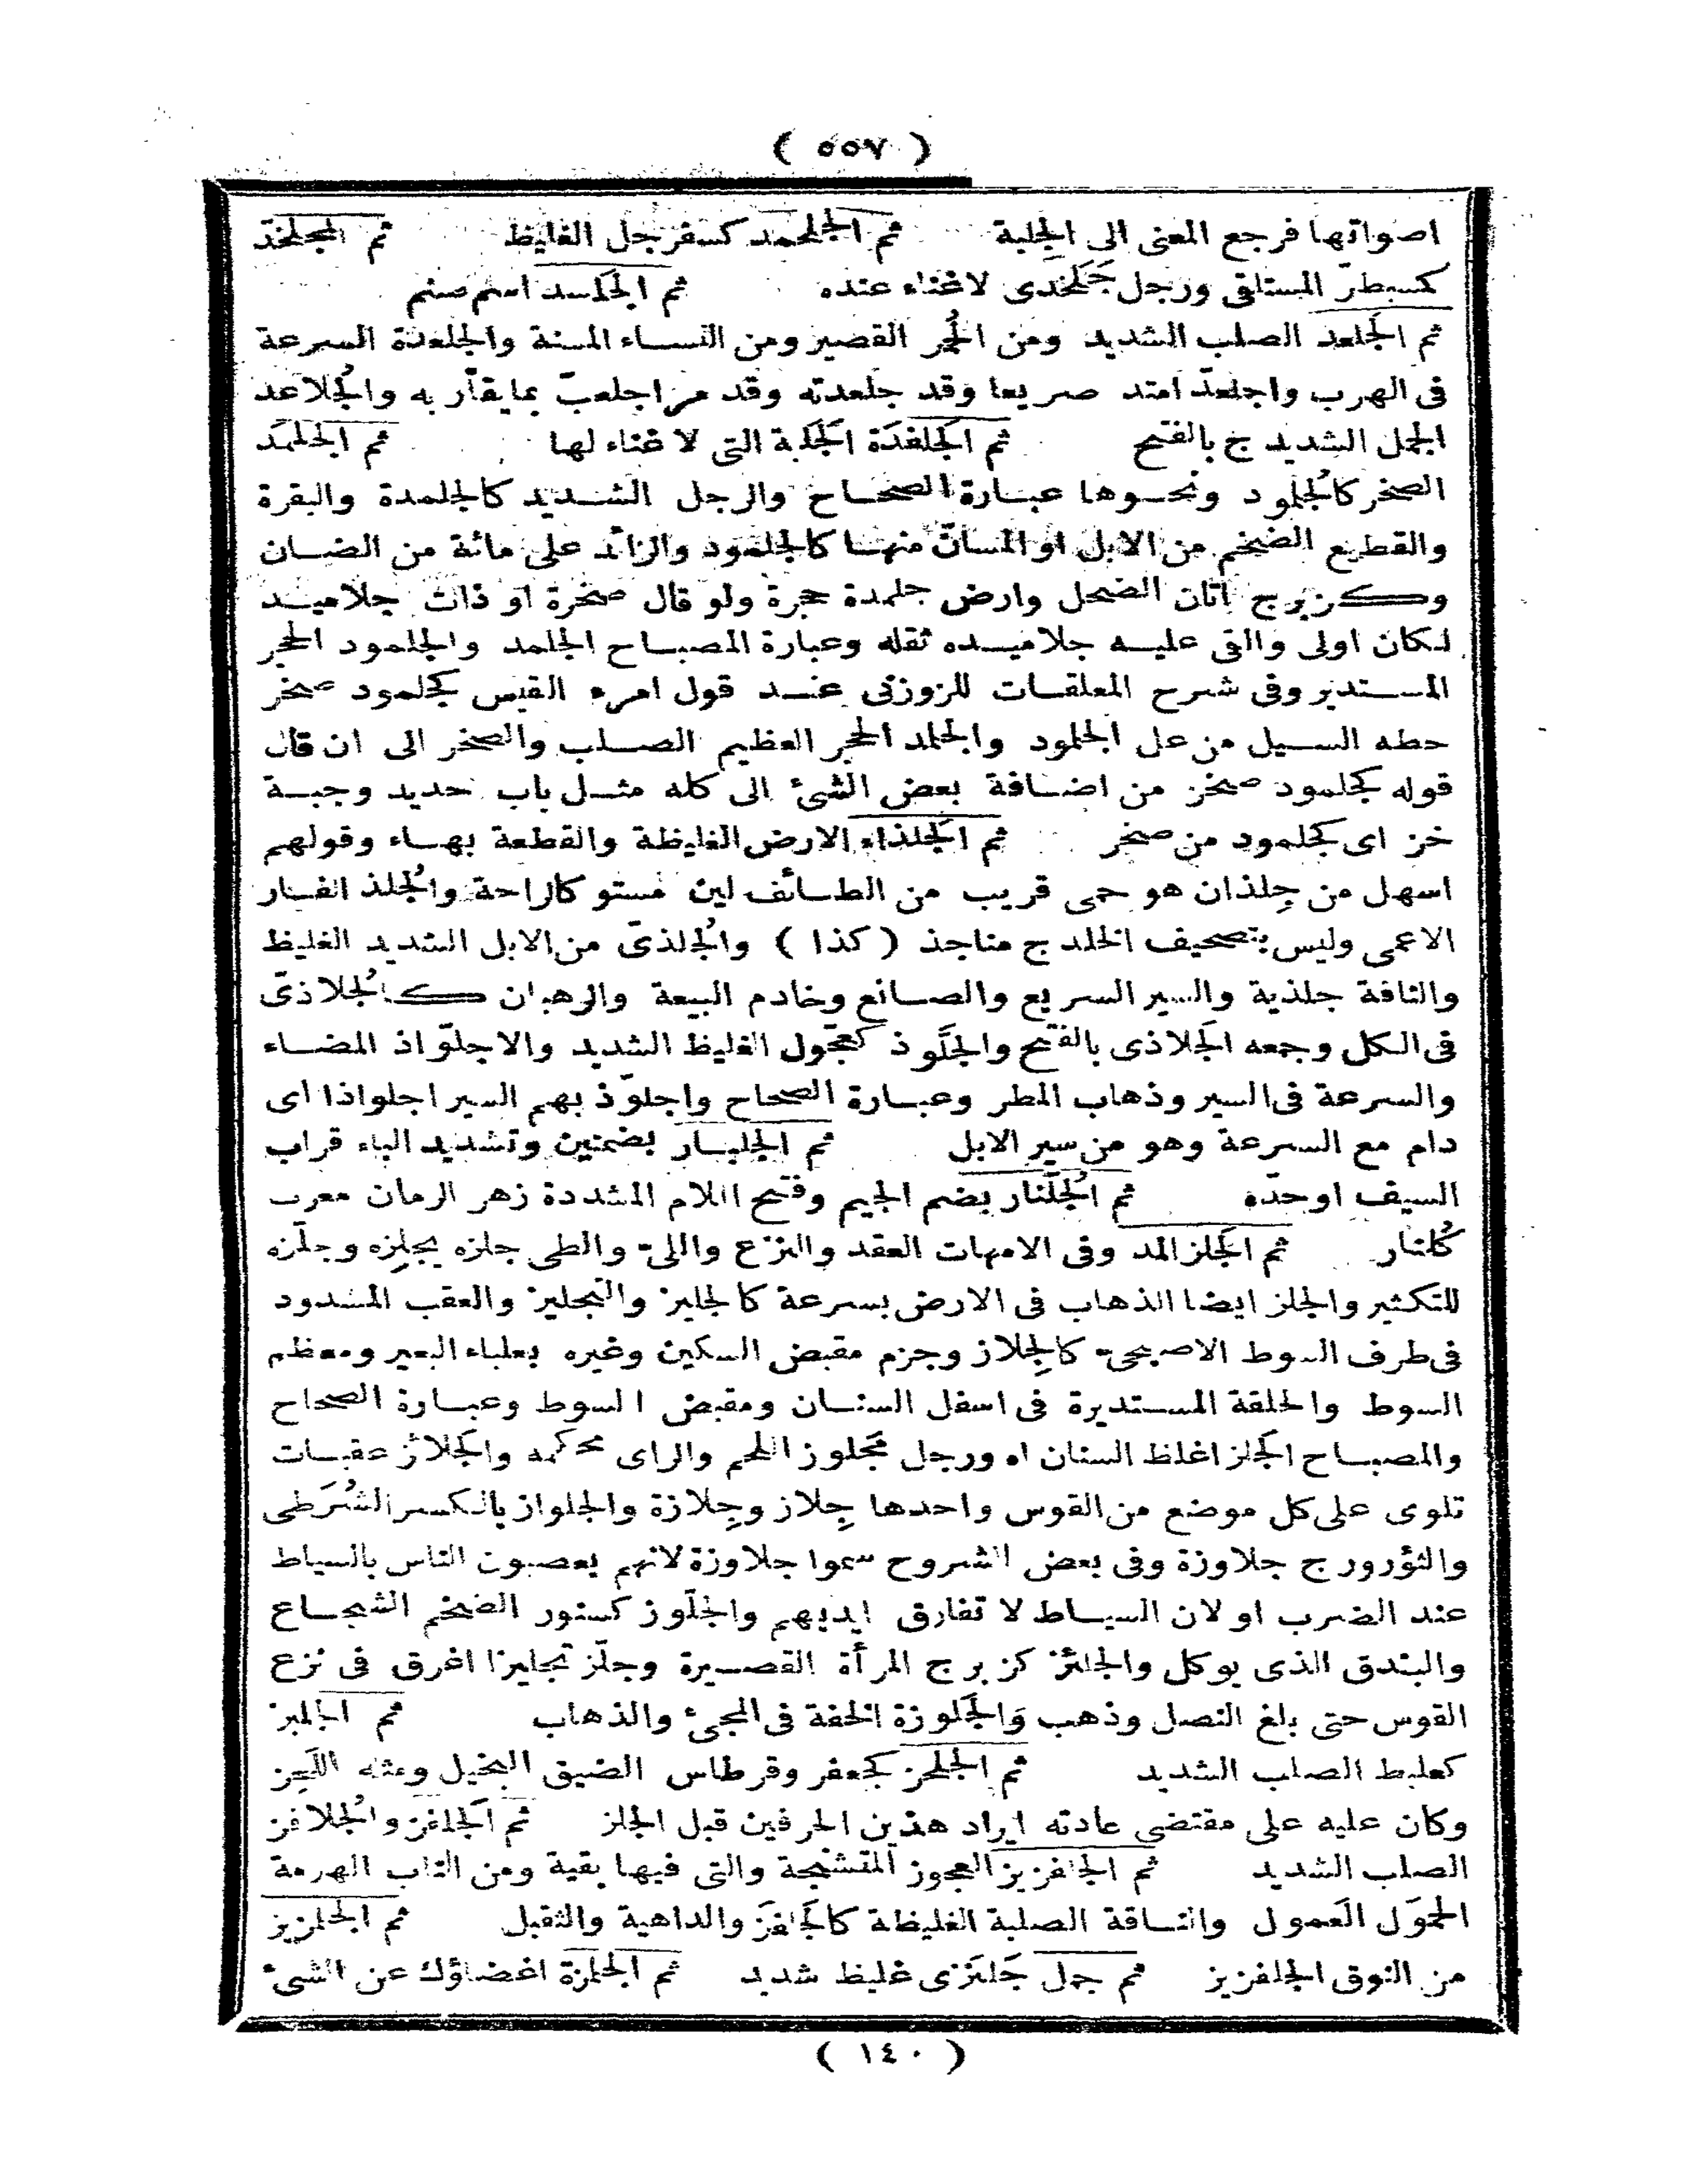 ( ٥٥٧ )
اصواتها فرجع المعنى الى الجِلبة ثم الجلحمد كسفرجل الغليظ ثم المجلخدّ
كسبطرّ المستلقى ورجل جَلَخدى لاغناء عنده ثم الجَلسد اسم صنم
ثم الجَلعد الصلب الشديد ومن الحُمر القصير ومن النساء المسنة والجلعدة السرعة
فى الهرب واجلعدّ امتد صريعا وقد جلعدته وقد مر اجلعبّ بما يقاربه والجُلاعد
الجمل الشديد ج بالفتح ثم الجَلفدَة الجَلَبة التى لا غناء لها ثم الجَلمَد
الصخر كالجُلمود ونحوها عبارة الصحاح والرجل الشديد كالجلمدة والبقرة
والقطيع الضخم من الابل او المسانّ منها كالجلمود والزائد على مائة من الضان
وكزبرج اتان الضحل وارض جلمدة حجرة ولو قال صخرة او ذات جلاميد
لكان اولى والقى عليه جلاميده ثقله وعبارة المصباح الجلمد والجلمود الحجر
المستدير وفى شرح المعلقات للزوزنى عند قول امرء القيس كجلمود صخر
حطه السيل من عل الجلمود والجلمد الحجر العظيم الصلب والصخر الى ان قال
قوله كجلمود صخر من اضافة بعض الشئ الى كله مثل باب حديد وجبة
خز اى كجلمود من صخر ثم الجَلذاء الارض الغليظة والقطعة بهاء وقولهم
اسهل من جِلذان هو حمى قريب من الطائف لين مستو كالراحة والجُلذ الفار
الاعمى وليس بتصحيف الخلد ج مناجذ ( كذا ) والجُلذىّ من الابل الشديد الغليظ
والناقة جلذية والسير السريع والصانع وخادم البيعة والرهبان كالجُلاذىّ
فى الكل وجمعه الجَلاذى بالفتح والجَلَّوذ كعجّول الغليظ الشديد والاجلوّاذ المضاء
والسرعة فى السير وذهاب المطر وعبارة الصحاح واجلوّذ بهم السير اجلواذا اى
دام مع السرعة وهو من سير الابل ثم الجلبار بضمتين وتشديد الباء قراب
السيف اوحدّه ثم الجُلَّنار بضم الجيم وفتح اللام المشددة زهر الرمان معرب
كُلنار ثم الجَلز المد وفى الامهات العقد والنزع واللىّ والطى جلزه يجلِزه وجلّزه
للتكثير والجلز ايضا الذهاب فى الارض بسرعة كالجليز والتجليز والعقب المشدود
فى طرف السوط الاصبحىّ كالجِلاز وجزم مقبض السكين وغيره بعلباء البعير ومعظم
السوط والحلقة المستديرة فى اسفل السنان ومقبض السوط وعبارة الصحاح
والمصباح الجَلز اغلظ السنان اه ورجل مجَلوز اللحم والراى محكمه والجَلائز عقبات
تلوى على كل موضع من القوس واحدها جِلاز وجِلازة والجلواز بالكسر الشُرَطى
والثؤرور ج جلاوزة وفى بعض الشروح سموا جلاوزة لانهم يعصبون الناس بالسياط
عند الضرب او لان السياط لا تفارق ايديهم والجلّوز كسنور الضخم الشجاع
والبندق الذى يوكل والجلئز كزبرج المرأة القصيرة وجلّز تجليزا اغرق فى نزع
القوس حتى بلغ النصل وذهب وَالجَلوزة الخفة فى المجئ والذهاب ثم الجلبز
كعلبط الصلب الشديد ثم الجلحز كجعفر وقرطاس الضيق البخيل ومثله اللَحِز
وكان عليه على مقتضى عادته ايراد هذين الحرفين قبل الجلز ثم الجَلفَز والجُلافز
الصلب الشديد ثم الجلفزيز العجوز المتشنجة والتى فيها بقية ومن الناب الهرمة
الحَموَل العَمول والناقة الصلبة الغليظة كالجَلفَز والداهية والثقيل ثم الجلمزيز
من النوق الجلفزيز ثم جمل جَلَنزى غليظ شديد ثم الجلهزة اغضاؤك عن الشئ
( ١٤٠ )